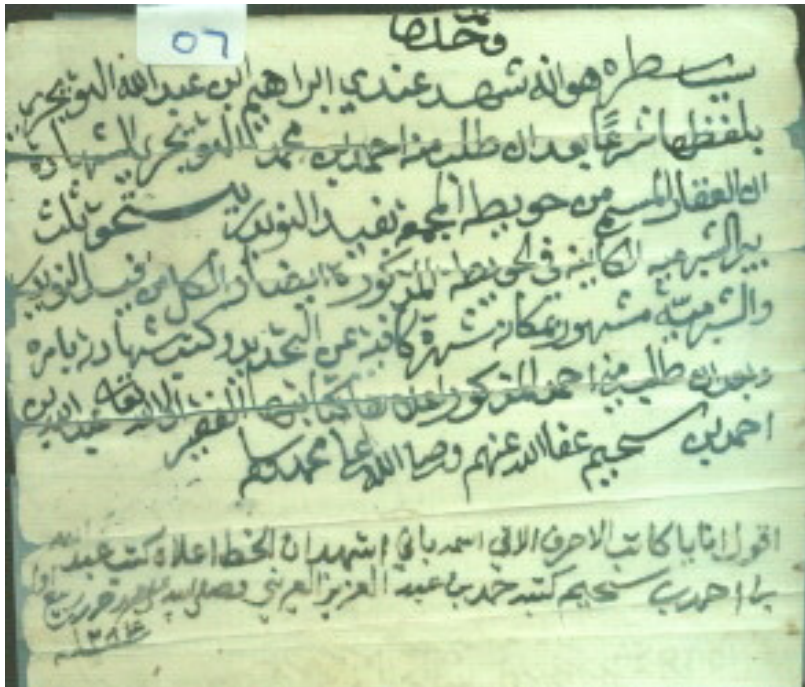 ٥٦
سطره هو انه شهد عندي ابراهيم ابن عبد الله التويجري
بلفظها شرعًا بعد ان طلب من احمد بن محمد التويجري الشهادة
ان العقار المسمى من حويطة المجمعه بفيد التويجري يستحق ثلث
بير الشبرميه الكاينه في الحويطه المذكورة ايضا
والشبرميه مشهور بمكانه شهرة كافيه عن التحديد وكتب شهادته بامره
وبعد ان طلب منه احمد المذكور اعلاه الفقير الى الله عبد الله بن
احمد بن سحيم عفا الله عنهم وصلى الله على محمد وسلم
اقول انا يا كاتب الاحرف الاتي اسمه باني اشهد ان الخط اعلاه كتب عبد الله
بن احمد بن سحيم كتبه حمد بن عبد العزيز العريني وصلى الله على محمد